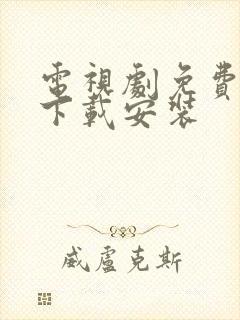 電視劇免費
下載安裝
威盧克斯